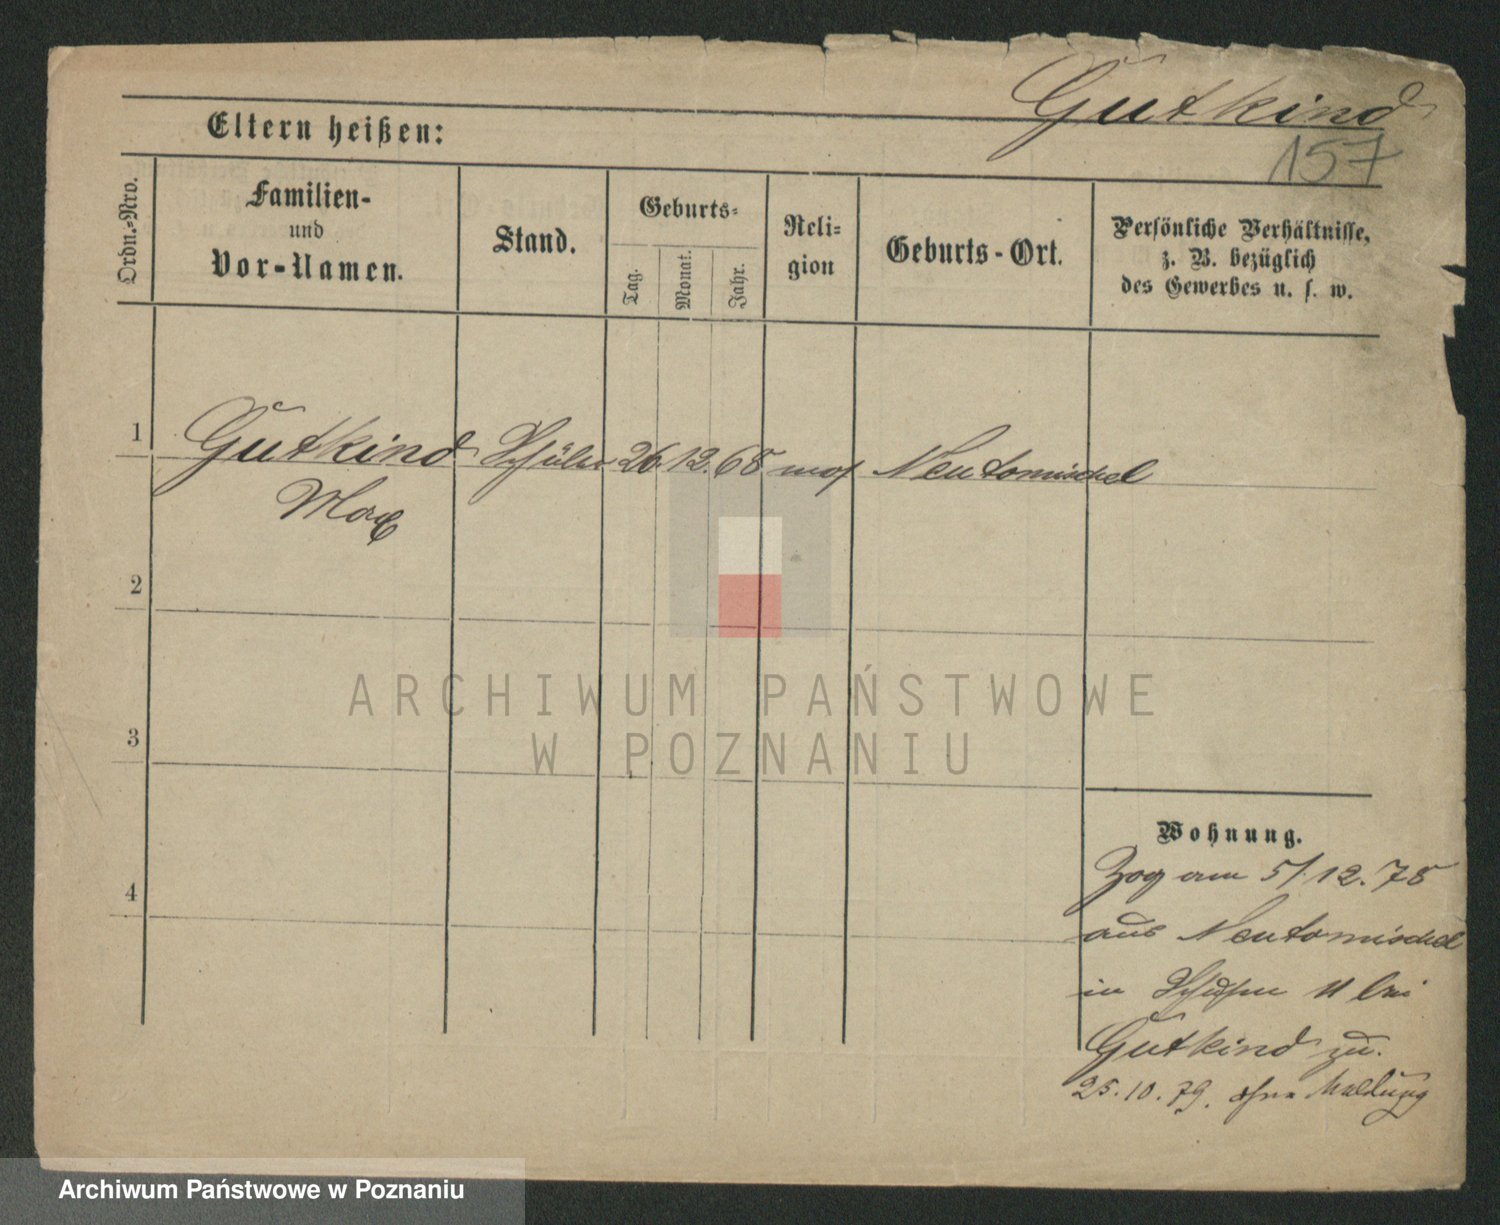 Gutkind
157
Eltern heißen:
Ordn.-Nro.
Familien-
und
Vor-Namen.
Stand.
Geburts-
Tag.
Monat.
Jahr.
Reli-
gion
Geburts-Ort.
Persönliche Verhältnisse,
z. B. bezüglich
des Gewerbes u. s. w.
1
Gutkind Schüler 26. 12. 68 mos Neutomischel
Max
2
3
4
Wohnung.
Zog am 5/12.78
aus Neutomischel
in 11 bei
Gutkind zu.
25.10.79. ohne Meldung
ARCHIWUM PAŃSTWOWE
W POZNANIU
Archiwum Państwowe w Poznaniu